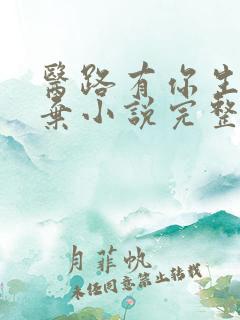 醫路有你生
棄小說完整
月菲帆
未經同意禁止转载